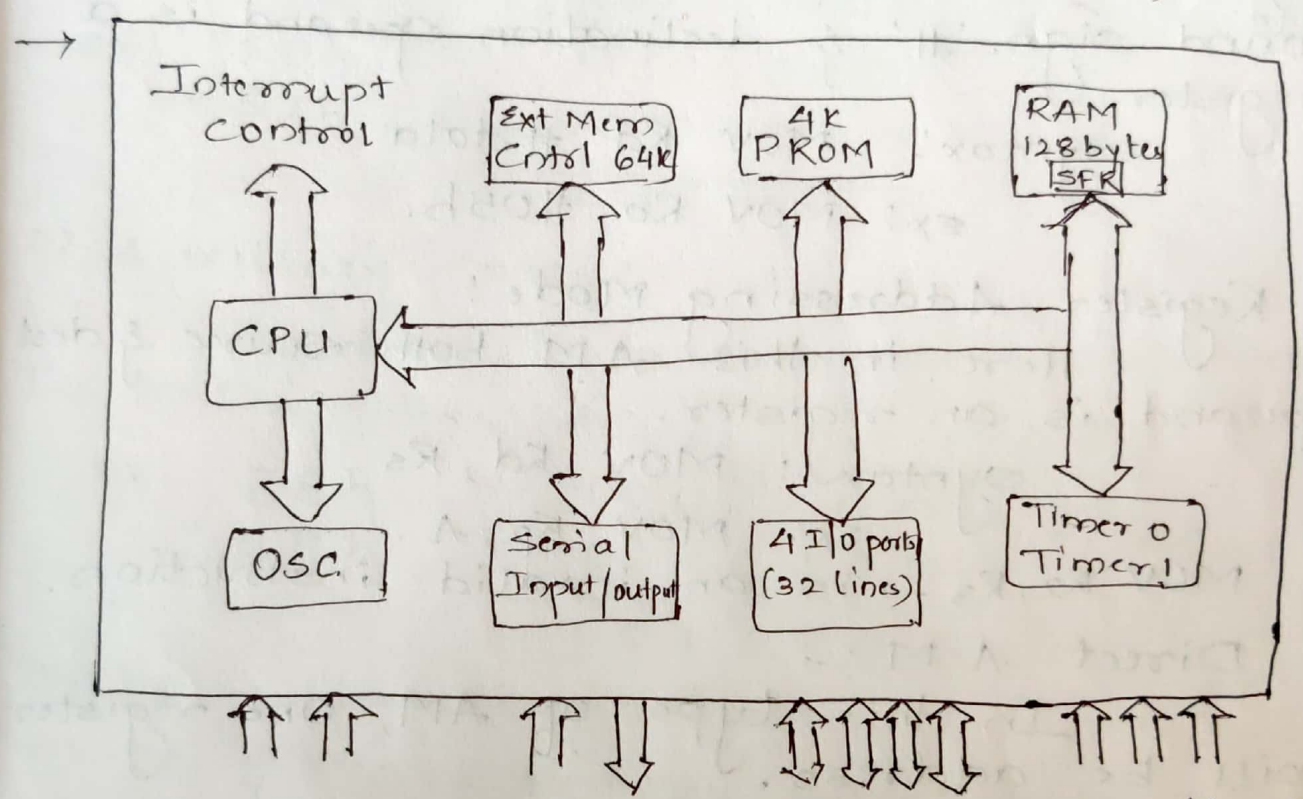 Interrupt
Control
Ext Mem
Cntrl 64K
4K
PROM
RAM
128 bytes
SFR
CPU
OSC
Serial
Input/output
4 I/O ports
(32 lines)
Timer 0
Timer 1